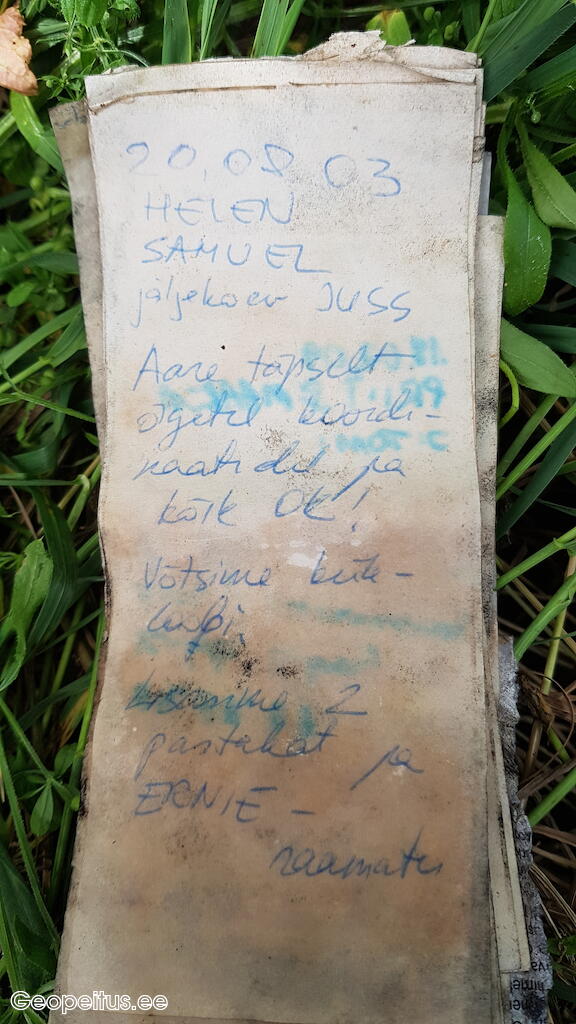 20.08 03
HELEN
SAMUEL
jäljekoer JUSS
Aare täpselt
õigetel koordi-
naatidel ja
kõik OK!
Võtsime
Lisasime 2
pastakat ja
ERNIE -
raamatu
Geopeitus.ee